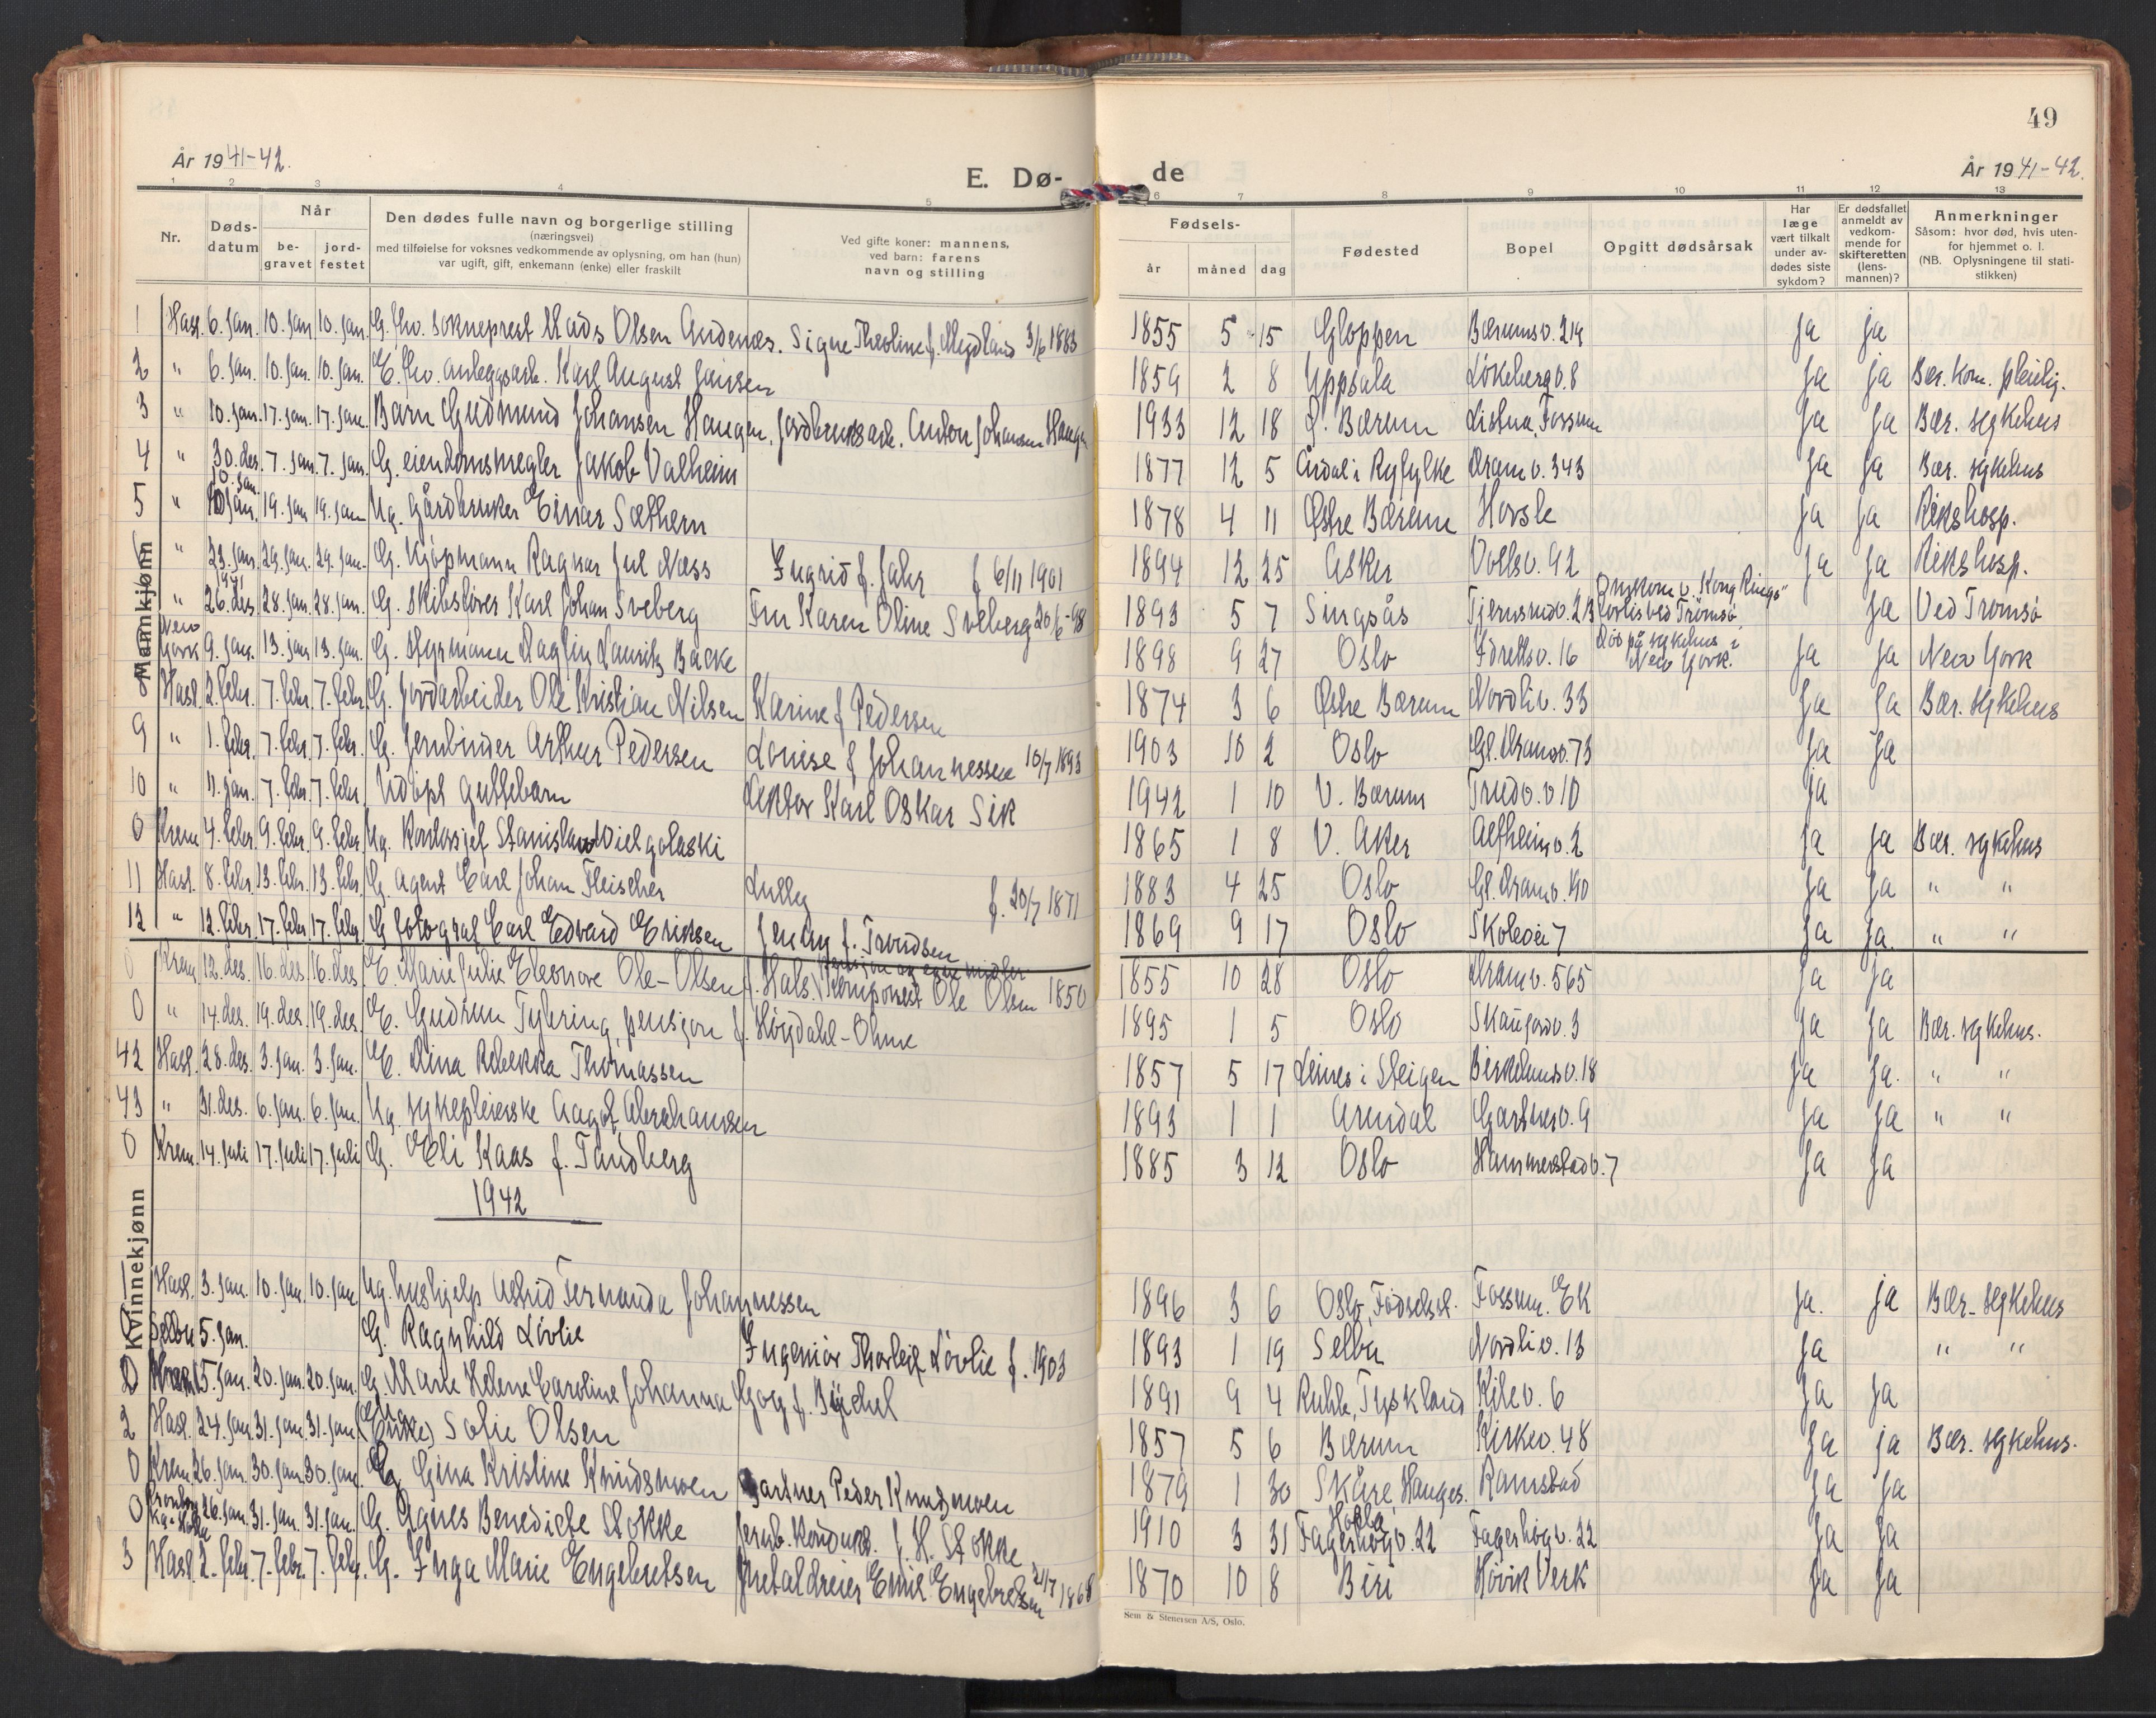 49
År 1941-42.
E. Dø-
de
År 1941-42.
1 2 3 4 5 6 7 8 9 10 11 12 13
Nr.
Døds-
datum
Når
be-
gravet
jord-
festet
Den dødes fulle navn og borgerlige stilling
(næringsvei)
med tilføielse for voksnes vedkommende av oplysning, om han (hun)
var ugift, gift, enkemann (enke) eller fraskilt
Ved gifte koner: mannens,
ved barn: farens
navn og stilling
Fødsels-
år måned dag
Fødested
Bopel
Opgitt dødsårsak
Har
læge
vært tilkalt
under av-
dødes siste
sykdom?
Er dødsfallet
anmeldt av
vedkom-
mende for
skifteretten
(lens-
mannen)?
Anmerkninger
Såsom: hvor død, hvis uten-
for hjemmet o. l.
(NB. Oplysningene til stati-
stikken)
Mannkjønn
1 Hasl. 6. jan. 10. jan. 10. jan. G. fhv. sokneprest Mads Olsen Andenæs. Signe Theoline f. Meydland 3/6 1883 1855 5 15 Gloppen Bærumsv. 214 ja ja
2 " 6. jan. 10. jan. 10. jan. E. fhv. anleggsarb. Karl August Jansen 1859 2 8 Uppsala Løkebergv. 8 ja ja Bær. kom. pleiehj.
3 " 10. jan. 17. jan. 17. jan. Barn Gudmund Johansen Haugen, jordbruksarb. Anton Johansen Haugen 1933 12 18 Ø. Bærum Listua, Fossum ja ja Bær. sykehus
4 " 30. des. 7. jan. 7. jan. G. eiendomsmegler Jakob Valheim 1877 12 5 Årdal i Ryfylke Dramv. 343 ja ja Bær. sykehus
5 " 10. jan. 19. jan. 19. jan. Ug. gårdbruker Einar Sæthern 1878 4 11 Østre Bærum Hosle ja ja Rikshosp.
" 23. jan. 29. jan. 29. jan. G. Kjøpmann Ragnar Jul Næss Ingrid f. Jahr f 6/11 1901 1894 12 25 Asker Vollsv. 92 ja ja Rikshosp.
" 26. des. 1941 28. jan. 28. jan. G. Skibsfører Karl Johan Sveberg Fru Karen Oline Sveberg 20/6-98 1893 5 7 Singsås Tjernsrudv. 23 Omkom v. "Kong Rings" forlis ved Tromsø ja Ved Tromsø
New York 9. jan. 13. jan. 13. jan. G. styrmann Dagfin Lauritz Backe 1898 9 27 Oslo Idrettsv. 16 Død på sykehus i New York. ja ja New York
8 Hasl. 2. febr. 7. febr. 7. febr. G. Jordarbeider Ole Kristian Nilsen Karine f Pedersen 1874 3 6 Østre Bærum Nordliv. 33 ja ja Bær. sykehus
9 " 1. febr. 7. febr. 7. febr. G. Jernbinder Arthur Pedersen Louise f Johannessen 10/7 1893 1903 10 2 Oslo Gl. Dramsv. 73 ja ja
10 " 11. jan. 7. febr. 7. febr. Udøpt guttebarn Lektor Karl Oskar Sik 1942 1 10 V. Bærum Trudv. v 10 ja
0 Krem 4. febr. 9. febr. 9. febr. Ug. Kontorsjef Stanislaw Wielgolaski 1865 1 8 V. Aker Alfheimv. 2 ja ja Bær. sykehus
11 Hasl. 8. febr. 13. febr. 13. febr. G agent Carl Johan Fleischer Lully f. 20/7 1871 1883 4 25 Oslo Gl. Dramv. 40 ja ja " "
12 " 12. febr. 17. febr. 17. febr. G fotograf Carl Edvard Eriksen Jenny f. Trondsen 1869 9 17 Oslo Skolevei 7 ja ja " "
Kvinnekjønn
0 Krem. 12. des. 16. des. 16. des. E. Marie Julie Eleonore Ole-Olsen f. Hals. Pensjon og egne midler Komponist Ole Olsen 1850 1855 10 28 Oslo Dramv. 565 ja ja
0 " 14. des. 19. des. 19. des. E. Gudrun Tybring, pensjon f. Høydahl-Ohme 1895 1 5 Oslo Skaugordv. 3 ja ja Bær. sykehus.
42 Hasl. 28. des. 3. jan. 3. jan. E. Dina Rebekka Thomassen 1857 5 17 Leines i Steigen Birkelundv. 18 ja ja. " "
43 " 31. des. 6. jan. 6. jan. Ug. sykepleierske Aagot Abrahamsen 1893 1 1 Arendal Gartnerv. 9 ja ja " "
0 Krem. 14. juli 17. juli 17. juli G. Eli Kaas f. Tandberg 1885 3 12 Oslo Hammerstadv. 7 ja ja
1942
1 Hasl. 3. jan. 10. jan. 10. jan Ug. hushjelp Astrid Fernanda Johannessen 1896 3 6 Oslo, Fødselsst. Fossum. EK ja. ja Bær. sykehus
Selbu 5. jan. G. Ragnhild Løvlie Ingeniør Thorleif Løvlie f. 1903 1893 1 19 Selbu Nordliv. 13 ja " "
0 Krem 15. jan. 20. jan. 20. jan. G. Marie Helene Caroline Johanna Gog f. Büchel 1891 9 4 Ruhla, Tyskland Kilev. 6 ja ja
2 Hasl. 24. jan. 31. jan. 31. jan. (Enke) Sofie Olsen 1857 5 6 Bærum Kirkev. 48 ja ja Bær. sykehus.
0 Krem. 26. jan. 30. jan. 30. jan. G Gina Kristine Knudsmoen Gartner Peder Knudsmoen 1879 1 30 Skåre, Hauges. Ramstad ja ja
0 26. jan. 31. jan. 31. jan. G. Agnes Benedicte Stokke Jernb. kondukt. J. H. Stokke 1910 3 31 Holla Fagerhøgv. 22 Fagerhøgv. 22 ja ja
3 Hasl. 2. febr. 7. febr. 7. febr. G. Inga Marie Engebretsen Metaldreier Emil Engebretsen 21/7 1868 1870 10 8 Biri Høvik Verk ja ja
Sem & Stenersen A/S, Oslo.